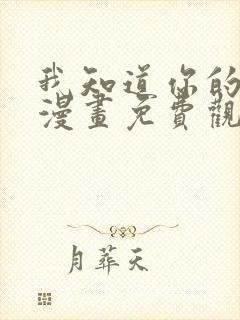 我知道你的
漫畫免費觀
月葬天